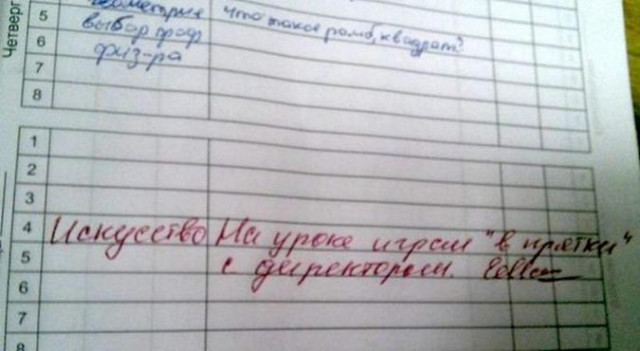 Четверг
5 геометрия Что такое ромб, квадрат?
6 выбор проф
7 физ-ра
8
1
2
3
4 Искусство На уроке играл "в прятки"
5 с директором.
6
7
8